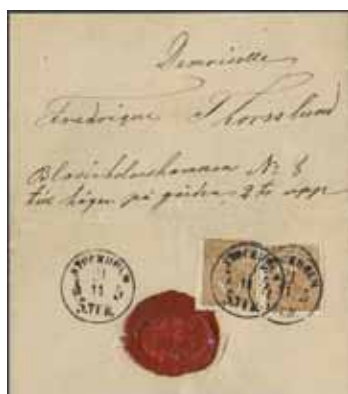 Demoiselle
Fredrique Thorsslund
Blasieholmshamnen No 8
till höger på gården 2 tr upp
STOCKHOLM
11
5 TUR.